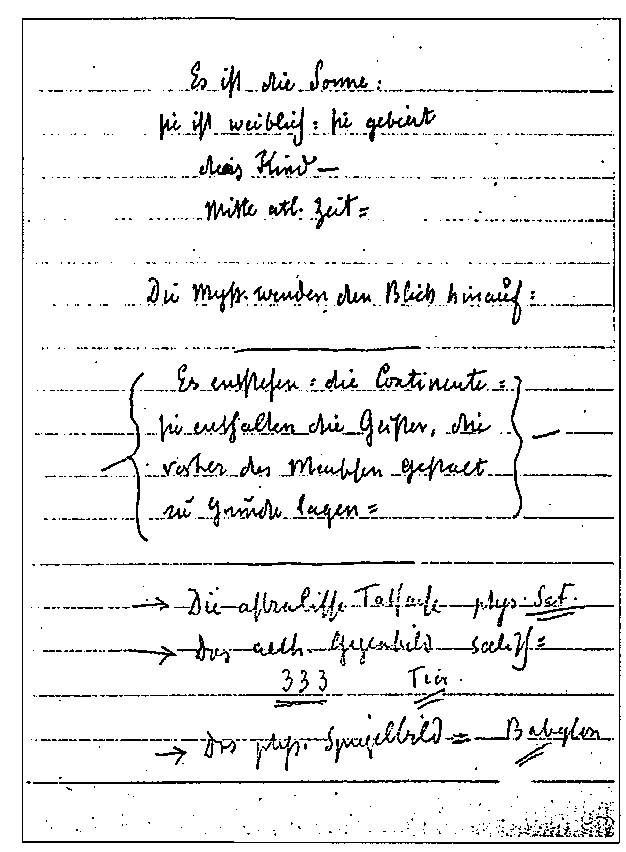 Es ist die Sonne:
sie ist weiblich: sie gebiert
das Kind —
Mitte atl. Zeit =
Die Myst. wenden den Blick hinauf:
Es entstehen = die Continente =
sie enthalten die Geister, die
vorher des Menschen Gestalt
zu Grunde lagen =
→ Die astralische Tatsache phys.
→ Das aeth. Gegenbild =
333 Tier.
→ Das phys. Spiegelbild = Babylon